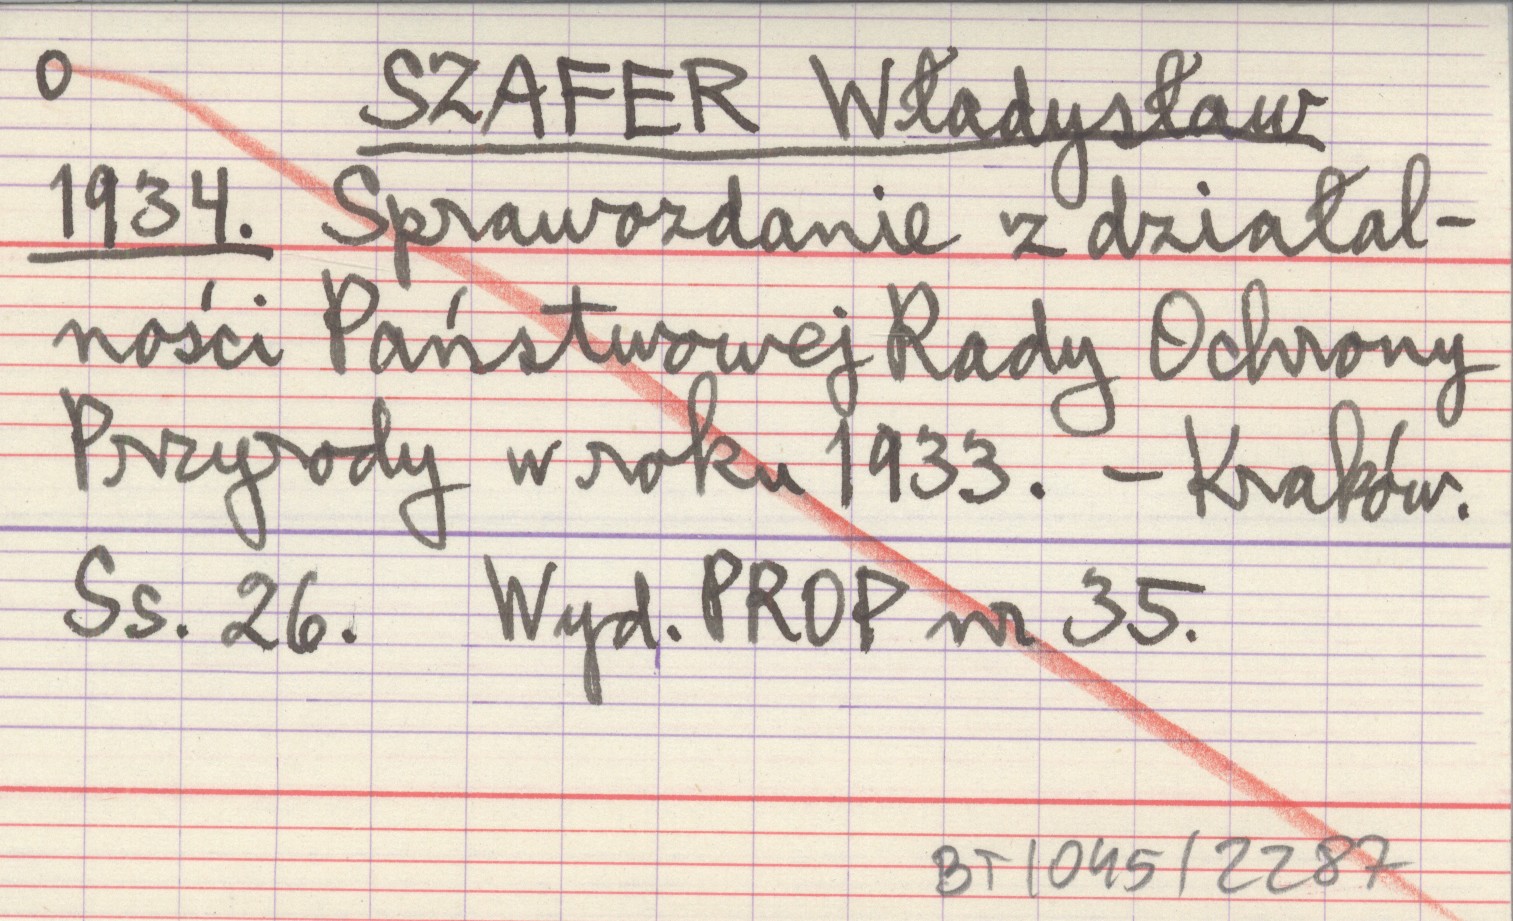 O SZAFER Władysław
1934. Sprawozdanie z działal-
ności Państwowej Rady Ochrony
Przyrody w roku 1933. – Kraków.
Ss. 26. Wyd. PROP nr 35.
BT/045/2287